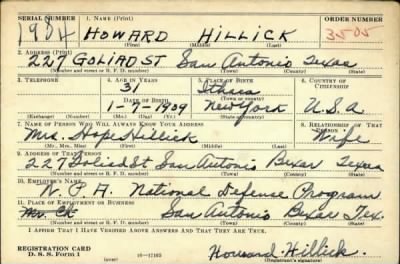 SERIAL NUMBER 1. NAME (Print) ORDER NUMBER
1984 HOWARD HILLICK 3505
(First) (Middle) (Last)
2. ADDRESS (Print)
227 GOLIAD ST San Antonio Texas
(Number and street or R. F. D. number) (Town) (County) (State)
3. TELEPHONE 4. AGE IN YEARS 5. PLACE OF BIRTH 6. COUNTRY OF CITIZENSHIP
31 Ithaca
(Town or county)
DATE OF BIRTH
1-7-1909 New York U.S.A
(Exchange) (No.) (Mo.) (Day) (Yr.) (State or country)
7. NAME OF PERSON WHO WILL ALWAYS KNOW YOUR ADDRESS 8. RELATIONSHIP OF THAT PERSON
Mrs. Hope Hillick Wife
(Mr., Mrs., Miss) (First) (Middle) (Last)
9. ADDRESS OF THAT PERSON
227 Goliad St San Antonio Bexar Texas
(Number and street or R. F. D. number) (Town) (County) (State)
10. EMPLOYER'S NAME
National Defense Program
11. PLACE OF EMPLOYMENT OR BUSINESS
San Antonio Bexar Tex.
(Number and street or R. F. D. number) (Town) (County) (State)
I AFFIRM THAT I HAVE VERIFIED ABOVE ANSWERS AND THAT THEY ARE TRUE.
REGISTRATION CARD
D. S. S. Form 1 (over) 16—17105 Howard Hillick.
(Registrant's signature)